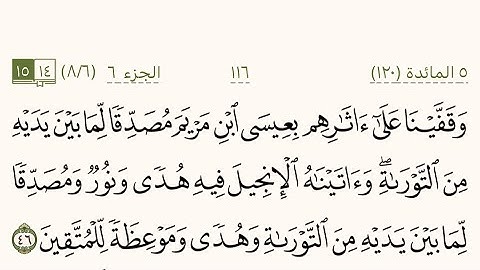 ٥ المائدة (١٢٠) ١١٦ الجزء ٦ (٨/٦) ١٤ ١٥
وَقَفَّيْنَا عَلَىٰٓ ءَاثَٰرِهِم بِعِيسَى ٱبْنِ مَرْيَمَ مُصَدِّقًا لِّمَا بَيْنَ يَدَيْهِ
مِنَ ٱلتَّوْرَىٰةِۖ وَءَاتَيْنَٰهُ ٱلْإِنجِيلَ فِيهِ هُدًى وَنُورٌ وَمُصَدِّقًا
لِّمَا بَيْنَ يَدَيْهِ مِنَ ٱلتَّوْرَىٰةِ وَهُدًى وَمَوْعِظَةً لِّلْمُتَّقِينَ ٤٦